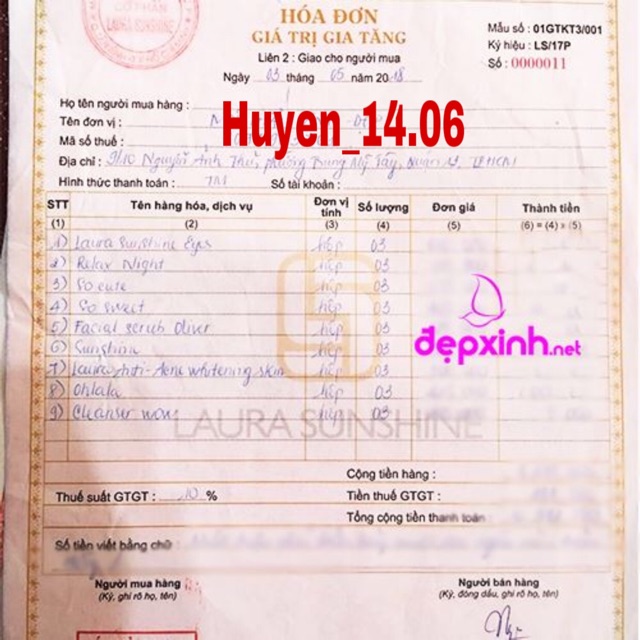 CỔ PHẦN
LAURA SUNSHINE
HÓA ĐƠN
GIÁ TRỊ GIA TĂNG
Liên 2 : Giao cho người mua
Ngày 03 tháng 05 năm 2018
Mẫu số : 01GTKT3/001
Ký hiệu : LS/17P
Số : 0000011
Họ tên người mua hàng :
Tên đơn vị :
Mã số thuế :
Huyen_14.06
Địa chỉ : 9/10 Nguyễn Ánh Thủ, phường Trung Mỹ Tây, Quận 12, TPHCM
Hình thức thanh toán : TM Số tài khoản :
STT Tên hàng hóa, dịch vụ Đơn vị tính Số lượng Đơn giá Thành tiền
(1) (2) (3) (4) (5) (6) = (4) x (5)
1) Laura Sunshine Eyes hộp 03
2) Relax Night hộp 03
3) So cute hộp 03
4) So sweet hộp 03
5) Facial scrub Oliver hộp 03
6) Sunshine hộp 03
7) Laura Anti-Acne whitening skin hộp 03
8) Ohlala hộp 03
9) Cleanser wow hộp 03
đẹpxinh.net
LAURA SUNSHINE
Cộng tiền hàng :
Thuế suất GTGT : 10 % Tiền thuế GTGT :
Tổng cộng tiền thanh toán
Số tiền viết bằng chữ :
Người mua hàng Người bán hàng
(Ký, ghi rõ họ, tên) (Ký, đóng dấu, ghi rõ họ, tên)